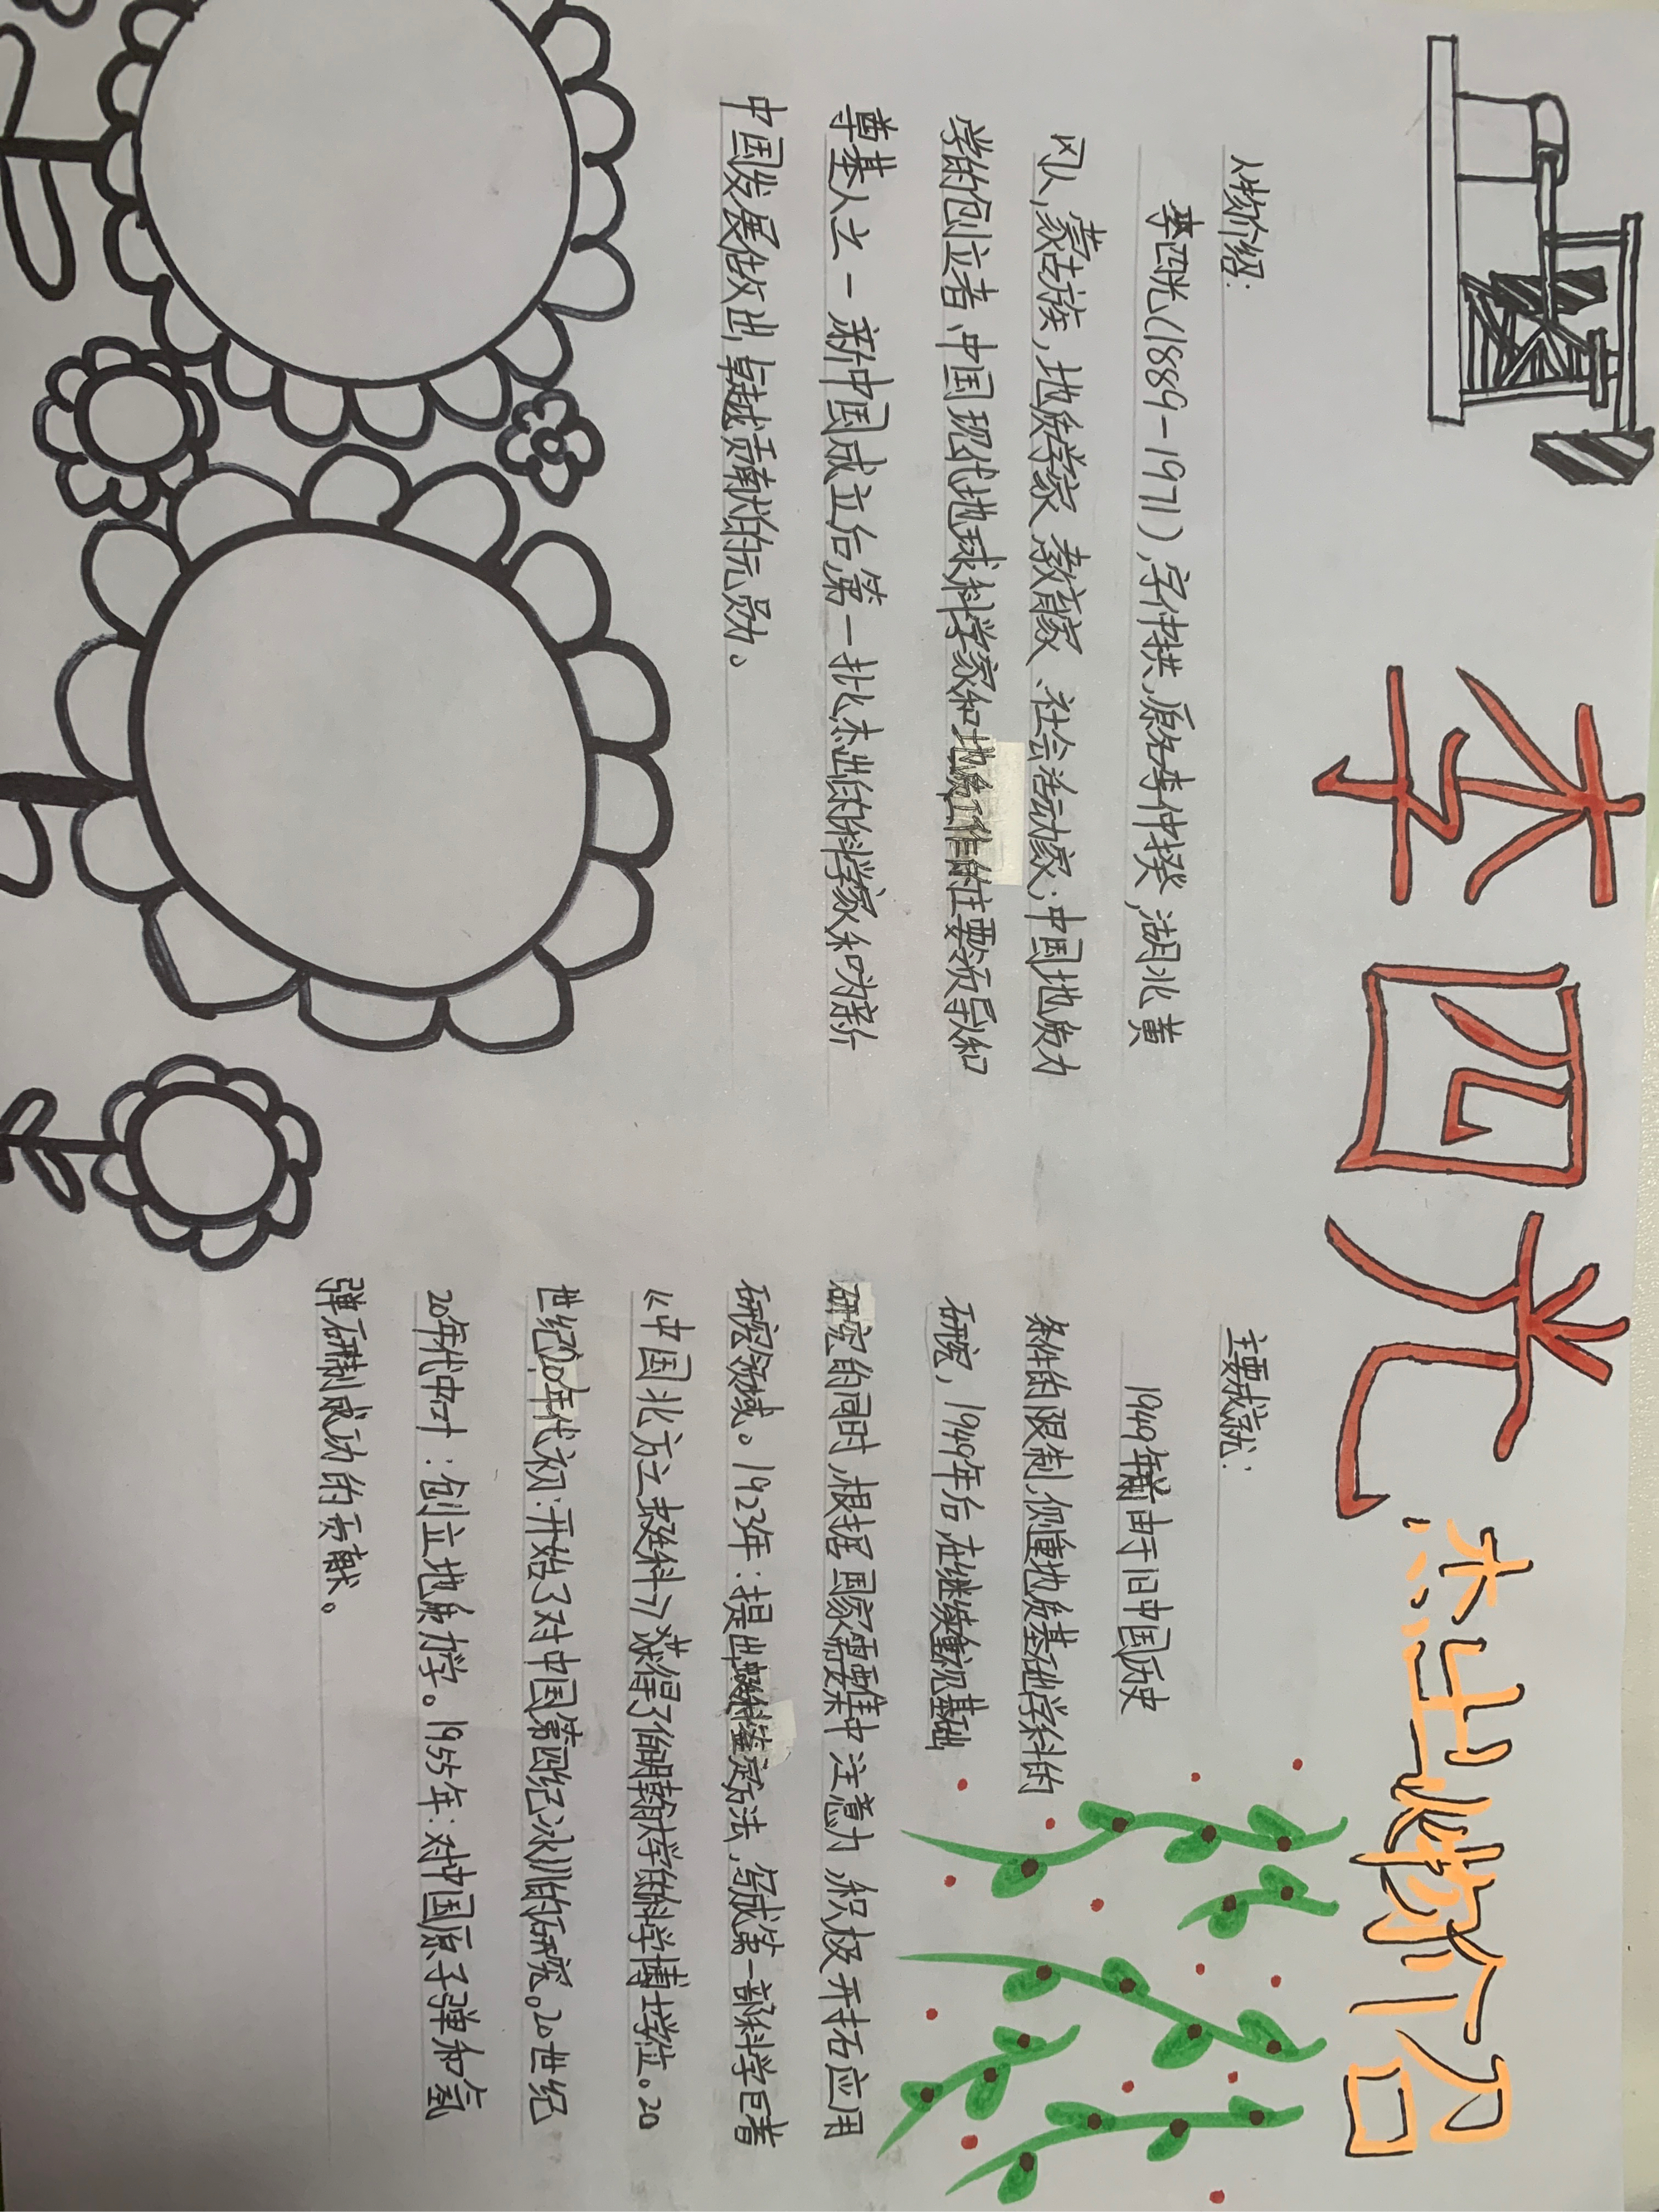 李四光 杰出人物介绍
人物介绍：
李四光（1889-1971），字仲拱，原名李仲揆，湖北黄
冈人，蒙古族，地质学家、教育家、社会活动家；中国地质力
学的创立者、中国现代地球科学家和地质工作的主要领导人和
尊基人之一，新中国成立后第一批杰出的科学家和为新
中国发展做出卓越贡献的元勋。
主要成就：
1949年前由于旧中国历史
条件的限制，侧重地质基础学科的
研究，1949年后在继续重视基础
研究的同时，根据国家需要集中注意力，积极开拓应用
研究领域。1923年：提出䗴科鉴定方法，写成第一部科学巨著
《中国北方之䗴科》获得了伯明翰大学的科学博士学位。20
世纪20年代初：开始了对中国第四纪冰川的研究。20世纪
20年代中叶：创立地质力学。1955年：对中国原子弹和氢
弹研制成功的贡献。